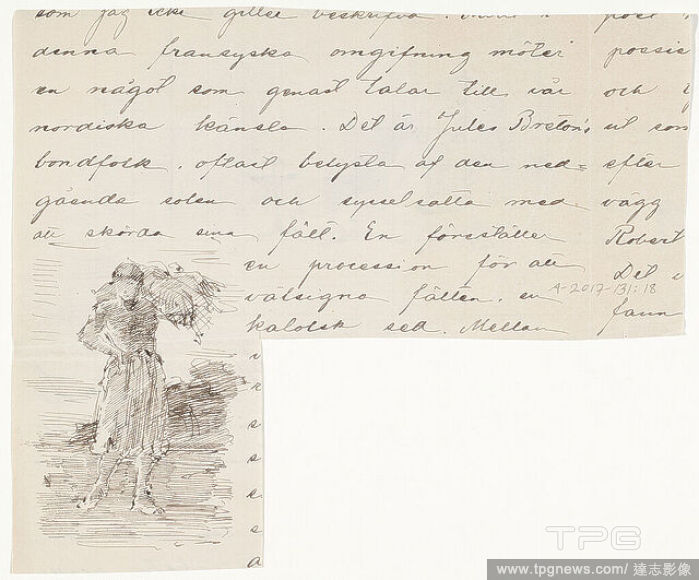 som jag icke beskrifva.
denna fransyska omgifning möter
en något som genast talar till vår
nordiska känsla. Det är Jules Breton's
bondfolk, oftast belysta af den ned=
gående solen och sysselsatta med
att skörda sina fält. En föreställer
en procession för att
välsigna fälten, en
katolsk sed. Mellan
poet
och
ut som
efter
vägg
Robert
Det
A-2017-131:18
fann
TPG
www.tpgnews.com/ 達志影像